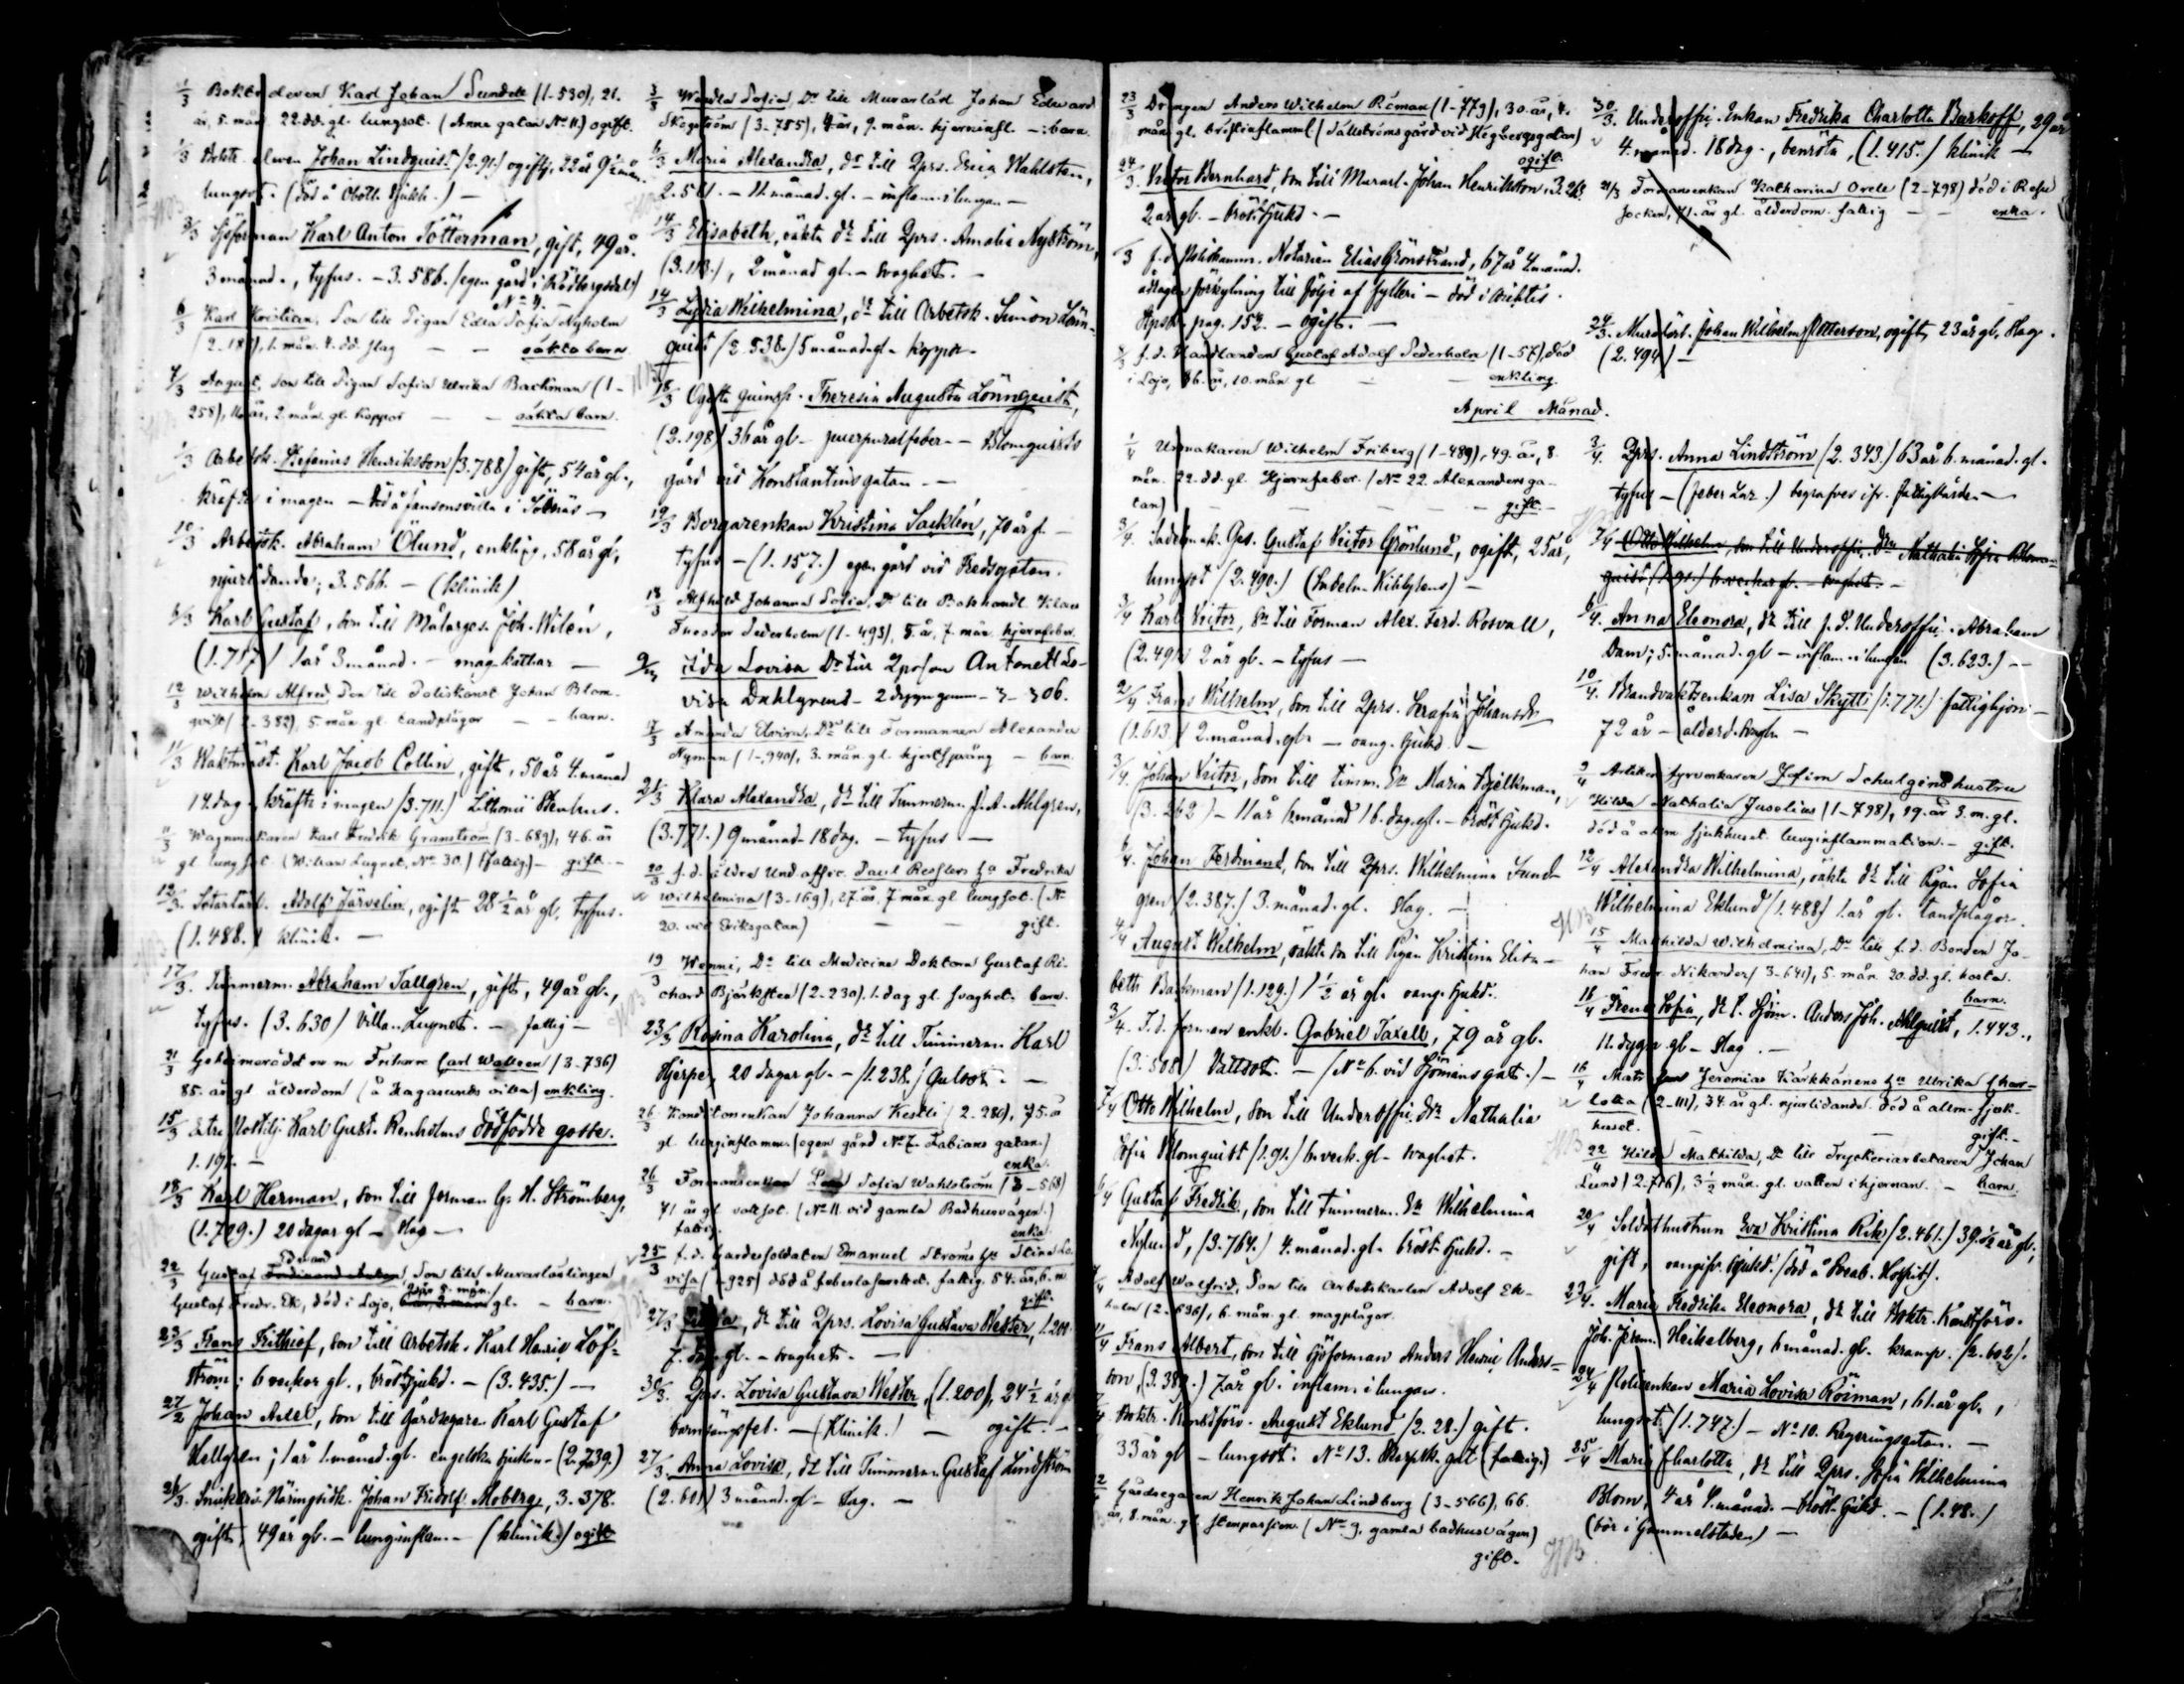 1/3 Boktr. eleven Karl Johan Sundell (1-530), 21.
år, 5. mån. 22. dd. gl. lungsot. (Anna gatan No 11.) ogift.
1/3 Johan Lindquist (2.91.) ogift, 22 år 9½ mån.
lungsot. (död å Sjukh.) —
3/3 Sjöforman Karl Anton Tötterman, gift, 49 år.
3 månad., tyfus. - 3.586. (egen gård i Rödbergsdal)
No 4. -
6/3 Karl Kristian, Son till Pigan Edla Sofia Nyholm
1. mån. 4. dd. slag — — oäkta barn
7/3 August, son till Pigan Sofia Ulrika Backman (1-
258), 2. mån. gl. koppor — — oäkta barn.
Arbetsk. Henriksson (3.788) gift, 54 år gl.,
kräfta i magen - död å Jansonsvilla i Sörnäs -
10/3 Arbetsk. Abraham Ölund, enkling, 58 år gl.,
njurlidande; 3.566. - (klinik)
Karl Gustaf, son till Målarges. Joh. Wilén,
(1.717) 1 år 3 månad. - mag. kattar —
12/3 Wilhelm Alfred Son till Poliskonst. Johan Blom-
qvist (2-382), 5. mån. gl. tandplågor — — barn.
11/3 Waktmäst. Karl Jacob Collin, gift, 50 år 4. månad
14. dag. kräfta i magen (3.711.) Stenhus.
11/3 Wagnmakaren Karl Fredrik Granström (3-689), 46. år
gl. lungsot (Willan Lugnet, No 30.) (fattig) - gift. -
12/3. Adolf Järvelin, ogift 28½ år gl. tyfus.
(1.488.) klinik. —
17/3. Timmerm. Abraham Tallgren, gift, 49 år gl.,
tyfus. (3.630) Villa Lugnet. - fattig -
21/3 Geheimerådet m m Friherre Carl Walleen (3-736)
85. år gl. ålderdom (å Hagasunds villa) enkling.
15/3 Karl Gust. Renholms dödfödde gosse.
1.191. -
18/3 Karl Herman, son till forman G. H. Strömberg,
(1.709.) 20 dagar gl - slag -
Edvard
22/3 Gustaf, Son till Murarlärlingen
Gustaf Fredr. Ek, död i Lojo, gl. - barn.
23/3 Frans Frithiof, son till Arbetsk. Karl Henric Löf-
ström; 6 veckor gl., bröstsjukd. - (3.435.) —
27/2 Johan Axel, son till Gårdsegare Karl Gustaf
Hellgren; 1 år 1. månad. gl. engelska sjukan - (2.739.)
26/3. Snickeri Näringsidk. Johan Fridolf Moberg, 3.378.
ogift, 49 år gl. - lunginflam. - (klinik.) ogift
3/3 Wendla Sofia, Dr till Murarlärl Johan Edward
Skogström (3-755), 4. år, 9. mån. hjerninfl. - barn.
6/3 Maria Alexandra, dr till Qprs. Erica Wahlsten,
2.561. - 11. månad. gl. - inflam. i lungan -
14/3 Elisabeth, oäkta dr till Qprs. Amalia Nyström,
(3.113.), 2 månad gl. - svaghet. -
14/3 Lydia Wilhelmina, dr till Arbetsk. Simon Lönn-
quist (2.538.) 5 månad gl. - koppor. -
18/3 Ogifta quinsp. Theresia Augusta Lönnquist,
(2.198) 36 år gl - puerpuralfeber - - Blomquists
gård vid Konstantinsgatan. -
19/3 Borgarenkan Kristina Sacklén, 70 år gl. -
tyfus - (1.157.) egen gård vid Fredsgatan.
18/3 Alfhild Johanna Sofia, Dr till Bokhandl. Klaus
Theodor Sederholm (1-493), 5. år, 7. mån. hjernfeber.
Ida Lovisa Dr till Qperson Antonett Lo-
visa Dahlgrens - 2 dygn gamm. - 3-306.
17/3 Amanda Elvira, Dr till Formannen Alexander
Nyman (1-940), 3. mån. gl. hjertsprång - barn.
21/3 Klara Alexandra, dr till Timmerm. J. A. Ahlgren,
(3.771.) 9 månad 18 dag. - tyfus -
20/3 f. d. äldre Und. offic. Paul Resslers h:a Fredrika
Wilhelmina (3-169), 27. år, 7 mån. gl lungsot. (No
20. vid Eriksgatan) — — gift.
19/3 Wenni, Dr till Medicine Doktorn Gustaf Ri-
chard Björksten (2-230). 1. dag gl. svaghet. barn.
23/3 Rosina Karolina, dr till Timmerm. Karl
Hjerpe, 20 dagar gl. - (1.238.) Gulsot. - —
26/3 Konditorenkan Johanna Kestli (2-280), 75. å
gl. lunginflamm. (egen gård No 7. Fabians gatan.)
enka.
26/3 Formansenkan Sofia Wahlström (3-568)
71 år gl vattsot. (No 11. vid gamla Badhusvägen.)
fattig. enka.
25/3 f. d. Gardessoldaten Emanuel Ströms h:u Stina Lo-
visa (-925) död å feberlasarettet. fattig. 54. år, 6. m
gift.
27/3, dr till Qprs. Lovisa Gustava Wester, 1.200.
7. dag. gl. - svaghet. —
30/3. Qprs. Lovisa Gustava Wester, (1.200), 24½ år gl
barnsängsfeb. - (Klinik.) — ogift. -
27/3. Anna Lovisa, dr till Timmerm. Gustaf Lindström
(2.601) 3 månad. gl - Slag. —
23/3 Drängen Anders Wilhelm Röman (1-779), 30. år, 4.
mån. gl. bröstinflamm. (Sällströms gård vid Högbergsgatan)
ogift.
24/3. Victor Bernhard, son till Murarl. Johan Henriksson, 3.26.
2 år gl. - bröstsjukd. -
3 f. d. Notarien Elias Grönstrand, 67 år 4. månad.
ådragen förkylning till följe af fylleri - död i häktis.
Apsk. pag. 152. - ogift. —
f. d. Handlanden Gustaf Adolf Sederholm (1-57), död
i Lojo, 66. år, 10. mån. gl — — enkling.
April Månad.
1/4 Urmakaren Wilhelm Friberg (1-489), 49. år, 8.
mån. 22. dd. gl. Hjernfeber. (No 22. Alexandersga-
tan) — — — — gift -
3/4. Sadelmak. Ges. Gustaf Victor Grönlund, ogift, 25 år,
lungsot (2.490.) —
3/4 Karl Victor, Sn till Forman Alex. Ferd. Rosvall,
(2.491) 2 år gl. - tyfus —
2/4 Frans Wilhelm, son till Qprs. Serafia Johansdr
(1.613) 2. månad. gl. - svag. sjukd. -
3/4. Johan Victor, son till timm. En Maria Bjelkman,
(3.262) - 11 år 1 månad 16. dag. gl. - bröst sjukd.
6/4. Johan Ferdinand, son till Qprs. Wilhelmina Sund-
gren (2.387.) 3. månad. gl. slag. -
4/4 August Wilhelm, oäkta son till Pigan Kristina Elisa-
beth Backman (1.129.) 1½ år gl. svag. sjukd.
3/4. F. d. forman enkl. Gabriel Taxell, 79 år gl.
(3.508) Vattsot. - (No 6. vid Sjömansgat.) -
7/4 Otto Wilhelm, son till Underoffic. dr Nathalia
Sofia Blomquist (1.91.) 6. veck. gl. - svaghet.
6/4 Gustaf Fredrik, son till timmerm. En Wilhelmina
Nylund, (3.764.) 4. månad. gl. bröst. sjukd. -
Adolf Walfrid, Son till Arbetskarlen Adolf Ek-
holm (2-636), 6. mån. gl. magplågor.
11/4 Frans Albert, son till Sjöforman Anders Henric Anders-
son, 7. år gl. inflam. i lungan.
7/4 Boktr. Konstförv. August Eklund (2.28.) gift.
33 år gl - lungsot. No 13. gat. (fattig.)
12/4 Gårdsegaren Henrik Johan Lindberg (3-566), 66.
år, 8. mån. gl. (No 9. gamla badhusvägen)
gift.
30/3. Underoffic. Enkan Fredrika Charlotta Barkoff, 29 år
4. månad. 18 dag., benröta, (1.415.) klinik —
21/3 Formansenkan Katharina Orell (2-798) död i
socken, 71. år gl. ålderdom. fattig — — enka.
24/3. Murarlärl. Johan Wilhelm Petterson, ogift, 23 år gl. slag.
(2.494) -
3/4. Qprs. Anna Lindström (2.343.) 63 år 6. månad. gl.
tyfus - (feber Laz.) begrafves ifr. fattiggården -
7/4 Otto Wilhelm, son till Underoffic. Dr Nathalia Sofia Blom-
quist, (1.91.) 6. veckor gl. - svaghet. -
6/4. Anna Eleonora, dr till f. d. Underoffic. Abraham
Dam; 5. månad. gl - inflam. i lungan (3.623.) -
10/4. Brandvaktsenkan Lisa Skytti (1.771.) fattighjon -
72 år - ålderd. svagh. -
9/4 Josim Schulgins hustru
Hilda Nathalia Juselius (1-798), 19. år 3. m. gl.
död å allm sjukhuset. lunginflammation. - gift.
12/4 Alexandra Wilhelmina, oäkta dr till Pigan Sofia
Wilhelmina Eklund (1.488) 1. år gl. tandplågor.
15/4 Mathilda Wilhelmina, Dr till f. d. Bonden Jo-
han Fredr. Nikander (3-641), 5. mån. 20. dd. gl. hosta.
barn.
16/4 Irene Sofia, dr t. Sjöm. Anders Joh. Ahlquist, 1.443.,
11. dygn gl - Slag. -
16/4 Jeremias Kärkkäinens h:u Ulrika Char-
lotta (2-111), 34. år gl. njurlidande. död å allm. sjuk-
huset. — — gift. -
22/4 Hilda Mathilda, Dr till Tryckeriarbetaren Johan
Lund (2.716), 3½ mån. gl. vatten i hjernan. - barn.
20/4 Soldathustrun Eva Kristina Rick (2.461.) 39½ år gl.,
gift, sjukd. (död å Hospit.).
23/4. Maria Fredrika Eleonora, dr till Boktr. Konstförv.
Joh. Jerem. Heikelberg, 6 månad. gl. kramp. (2.602).
24/4 Polisenkan Maria Lovisa Röiman, 61. år gl.,
lungsot. (1.747.) - No 10. Regeringsgatan. —
25/4 Maria Charlotta, dr till Qprs. Sofia Wilhelmina
Blom, 4 år 4. månad. - bröst. sjukd. - (1.48.)
(bör i Gammelstaden) —